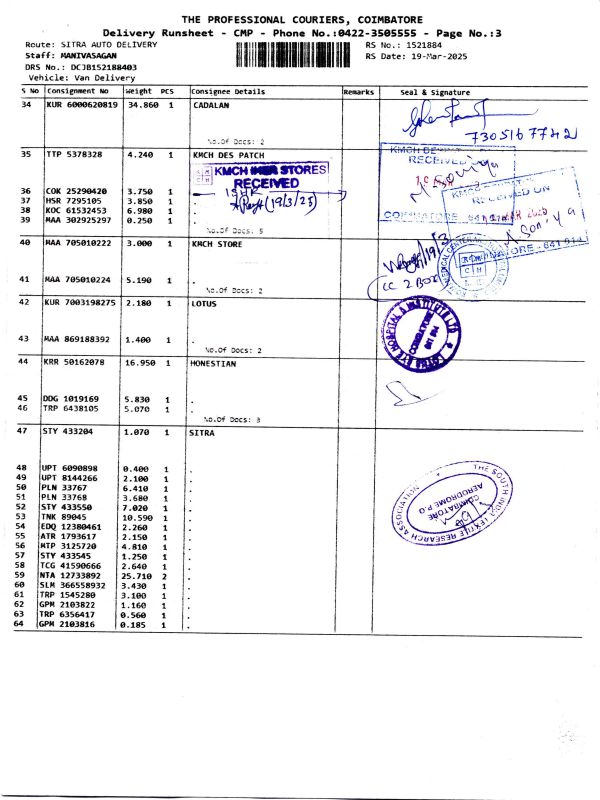 THE PROFESSIONAL COURIERS, COIMBATORE
Delivery Runsheet - CMP - Phone No.:0422-3505555 - Page No.:3
Route: SITRA AUTO DELIVERY
RS No.: 1521884
Staff: MANIVASAGAN
RS Date: 19-Mar-2025
DRS No.: DCJB152188403
Vehicle: Van Delivery
S No Consignment No Weight PCS Consignee Details Remarks Seal & Signature
34 KUR 6000620819 34.860 1 CADALAN
7305167742
No.Of Docs: 2
35 TTP 5378328 4.240 1 KMCH DES PATCH
KMCH STORES
RECEIVED
RECEIVED
36 COK 25290420 3.750 1 .
37 HSR 7295105 3.850 1 .
(19/3/25)
RECEIVED ON
38 KOC 61532453 6.980 1 .
39 MAA 302925297 0.250 1 .
No.Of Docs: 5
40 MAA 705010222 3.000 1 KMCH STORE
COIMBATORE - 641 014
41 MAA 705010224 5.190 1 .
CC 2 BOX
No.Of Docs: 2
42 KUR 7003198275 2.180 1 LOTUS
LOTUS EYE HOSPITAL & INSTITUTE LTD
COIMBATORE
641 014
43 MAA 869188392 1.400 1 .
No.Of Docs: 2
44 KRR 50162078 16.950 1 HONESTIAN
45 DDG 1019169 5.830 1 .
46 TRP 6438105 5.070 1 .
No.Of Docs: 3
47 STY 433204 1.070 1 SITRA
THE SOUTH INDIA TEXTILE RESEARCH ASSOCIATION
COIMBATORE
AERODROME P.O
48 UPT 6090898 0.400 1 .
49 UPT 8144266 2.100 1 .
50 PLN 33767 6.410 1 .
51 PLN 33768 3.680 1 .
52 STY 433550 7.020 1 .
53 TNK 89045 10.590 1 .
54 EDQ 12380461 2.260 1 .
55 ATR 1793617 2.150 1 .
56 MTP 3125720 4.810 1 .
57 STY 433545 1.250 1 .
58 TCG 41590666 2.640 1 .
59 NTA 12733892 25.710 2 .
60 SLM 366558932 3.430 1 .
61 TRP 1545280 3.100 1 .
62 GPM 2103822 1.160 1 .
63 TRP 6356417 0.560 1 .
64 GPM 2103816 0.185 1 .